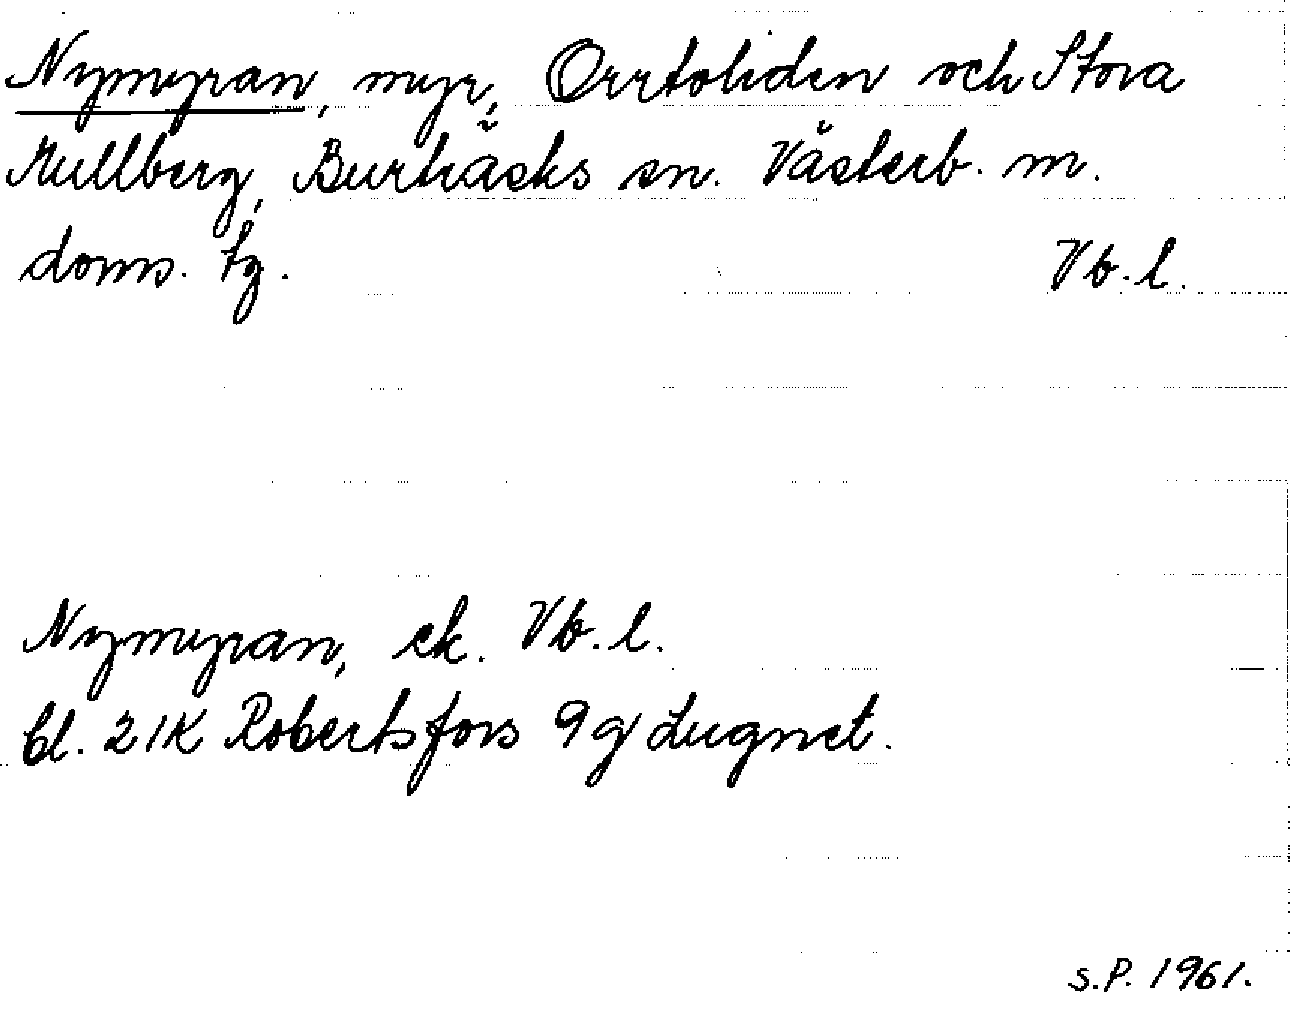 Nymyran, myr, Orrtoliden och Stora
Mullberg, Burträsks sn. Västerb. m.
doms. tg. Vb. l.
Nymyran, ek. Vb. l.
bl. 21K Robertsfors 9 g Lugnet.
S.P. 1961.